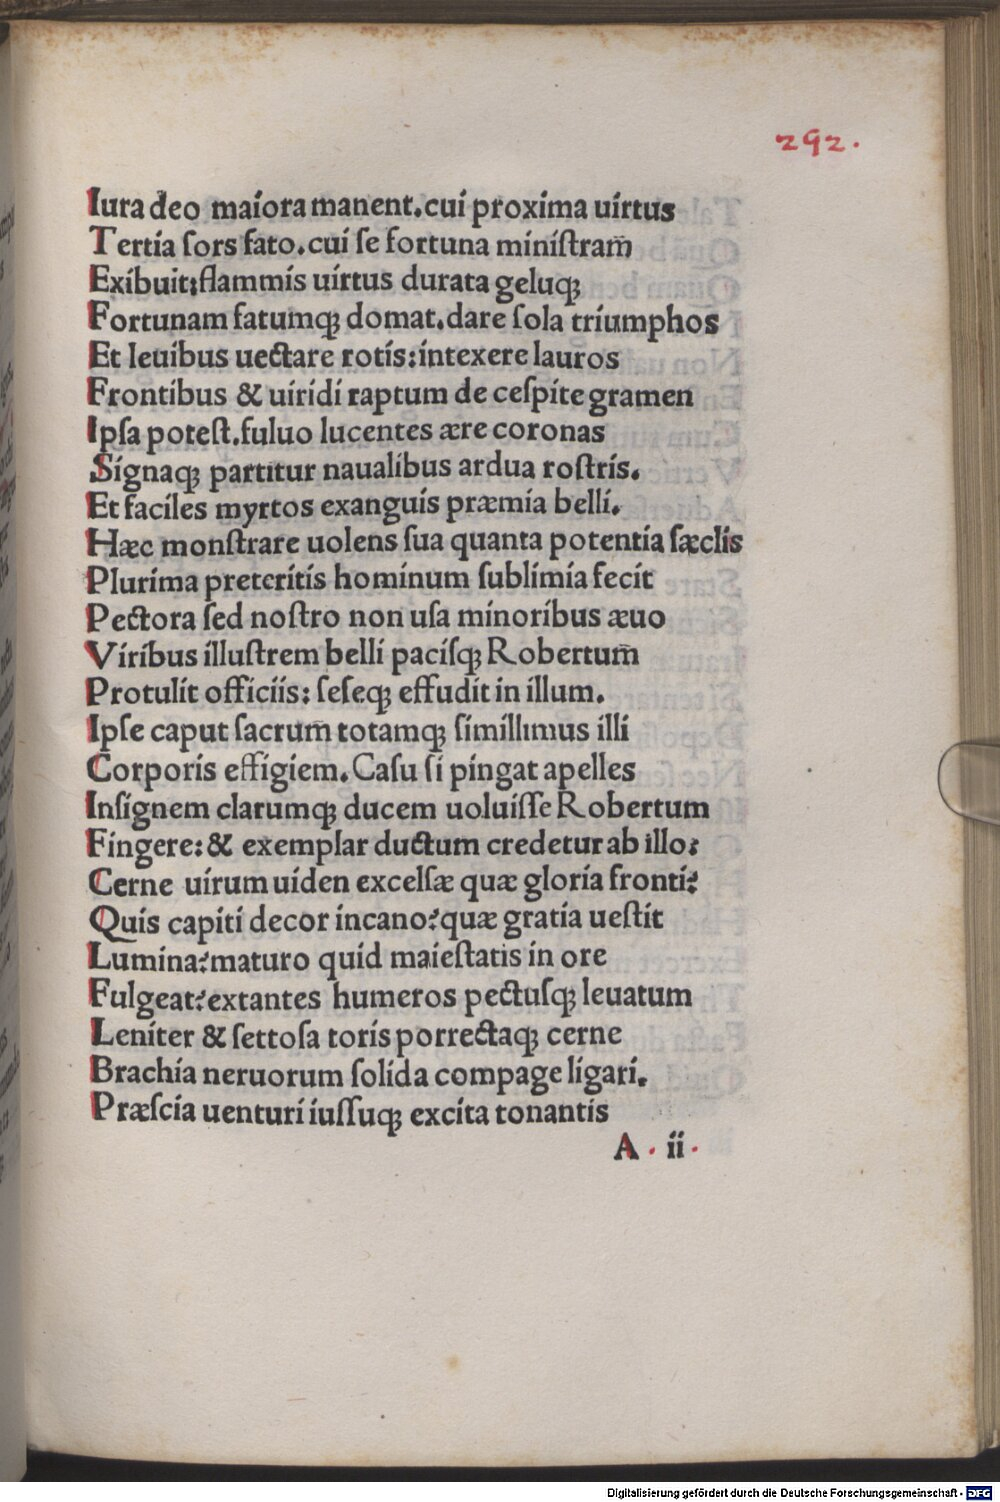 292.
Iura deo maiora manent.cui proxima uirtus
Tertia ſors fato.cui ſe fortuna miniſtram̄
Exibuit:flammis uirtus durata geluqꝫ
Fortunam fatumqꝫ domat.dare ſola triumphos
Et leuibus uectare rotis:intexere lauros
Frontibus & uiridi raptum de ceſpite gramen
Ipſa poteſt.fuluo lucentes ære coronas
Signaqꝫ partitur naualibus ardua roſtris.
Et faciles myrtos exanguis præmia belli.
Hæc monſtrare uolens ſua quanta potentia ſæclis
Plurima preteritis hominum ſublimia fecit
Pectora ſed noſtro non uſa minoribus æuo
Viribus illuſtrem belli paciſqꝫ Robertum̄
Protulit officiis: ſeſeqꝫ effudit in illum.
Ipſe caput ſacrum̄ totamqꝫ ſimillimus illi
Corporis effigiem.Caſu ſi pingat apelles
Inſignem clarumqꝫ ducem uoluiſſe Robertum
Fingere:& exemplar ductum credetur ab illo:
Cerne uirum uiden excelſæ quæ gloria fronti?
Quis capiti decor incano?quæ gratia ueſtit
Lumina?maturo quid maieſtatis in ore
Fulgeat?extantes humeros pectuſqꝫ leuatum
Leniter & ſettoſa toris porrectaqꝫ cerne
Brachia neruorum ſolida compage ligari.
Præſcia uenturi iuſſuqꝫ excita tonantis
A . ii .
Digitalisierung gefördert durch die Deutsche Forschungsgemeinschaft - DFG